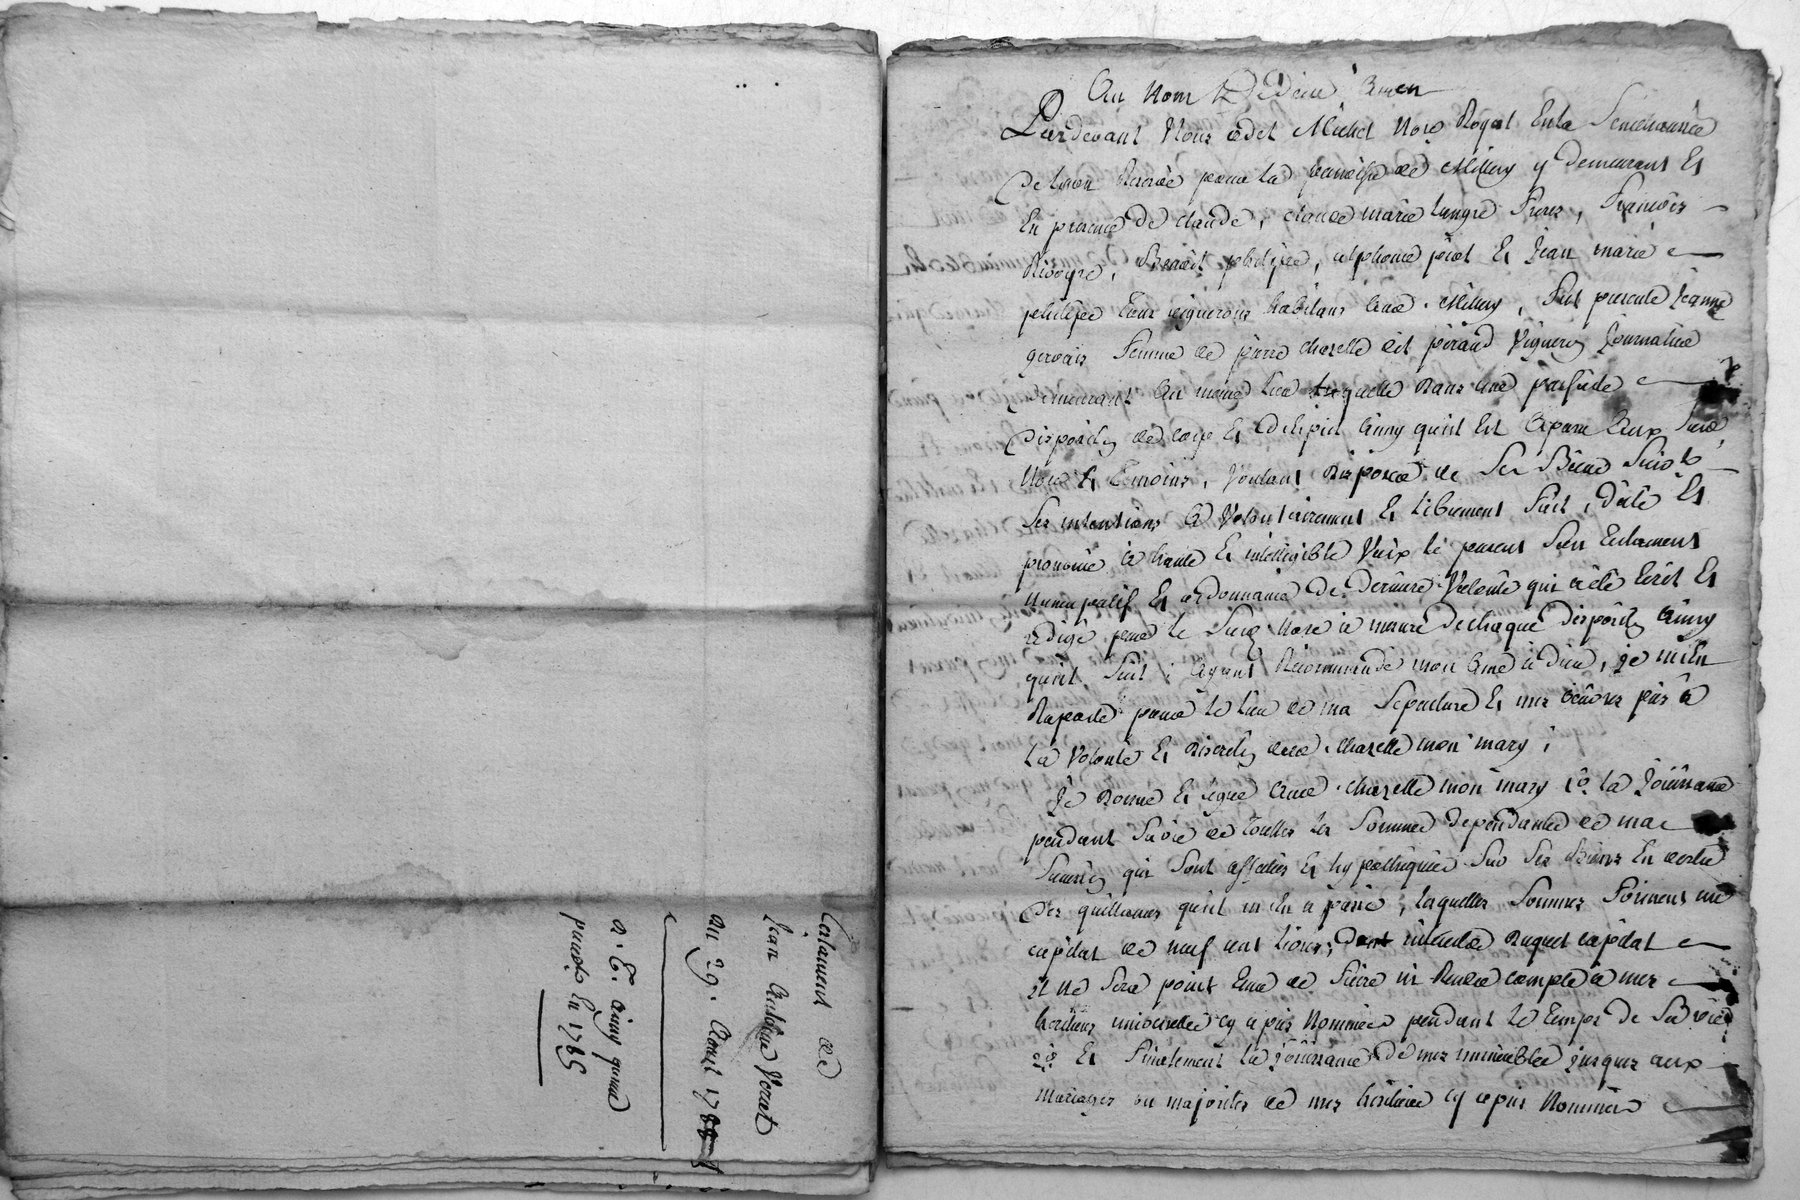 Testament de
Jean Antoine Verat
du 29. Aoust 1785
n. E. ainsy quune
en 1785
Au Nom de Dieu amen
Pardevant Nous odet Michel Nore Royal En la Senechaussée
De Lyon Reservé pour la paroisse de Millery y demeurant Et
En presence De claude, claude marie Lungre Freres, François
Rivoyre, Benoit philipe, alphonse piot Et Jean marie
philipe tous vignerons habitans dud. Millery, fut presente Jeanne
gervais Femme de pierre chazelle dit péraud Vigneron Journalier
demeurant au même lieu laquelle Dans une parfaite
Disposion de corps Et Desprit ainsy quil Est Aparu Aux susd
Nore Et Temoins, Voulant Disposer de Ses Biens Suivt
Ses intentions a Volontairement Et librement Fait, Dicté Et
prononcé à haute Et intelligible Voix le present Sien Testament
Nuncupatif Et ordonnance De Derniere Volonté qui a été Ecrit Et
redigé par le Susd Nore a mesure De chaque Disposion Ainsy
quil Suit; Ayant Recommandé mon Ame à dieu, je m'En
Raporte pour le lieu de ma Sepulture Et mes oeuvres pies à
La Volonté Et Discretion dud. chazelle mon mary;
Je Donne Et legue Aud. chazelle mon mary 1o. la Joüissance
pendant Sa vie de toutes les Sommes Dependantes de ma
Succession qui Sont affectées Et hypothequées Sur Ses Biens En vertu
Des quittances quil m'En a passé, lesquelles Sommes Forment un
capital de neuf cent livres, duquel capital
il ne Sera point tenu de Faire ni Rendre compte à mes
heritiers universelles cy apres Nommées pendant le temps De Sa vie
2o. Et Finalement la joüissance De mes immeubles jusques aux
mariages ou majorités de mes heritieres cy apres Nommées